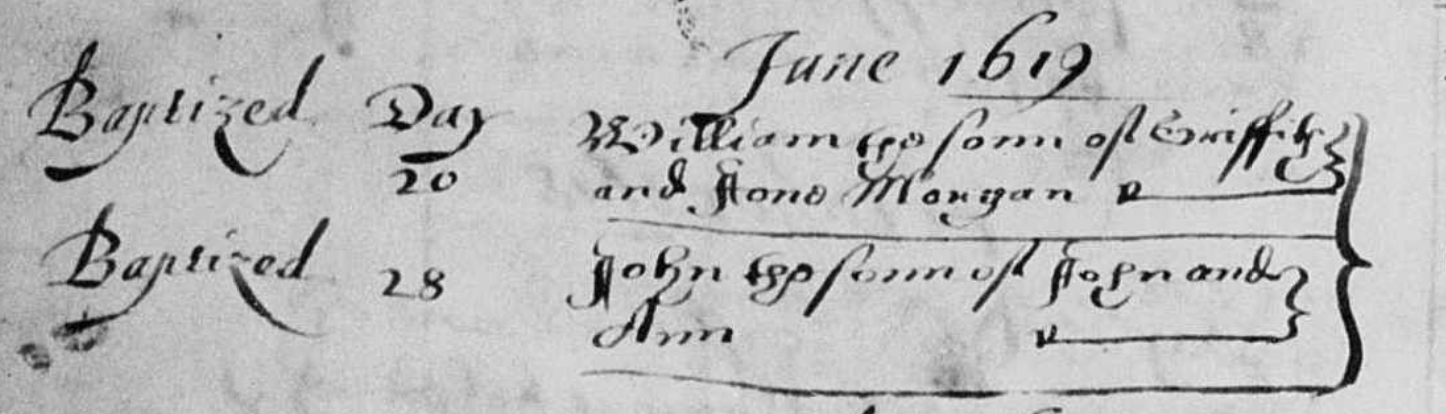 June 1619
Baptized Day William the sonn of Griffith
20 and Jone Morgan
Baptized 28 John the sonn of John and
Ann